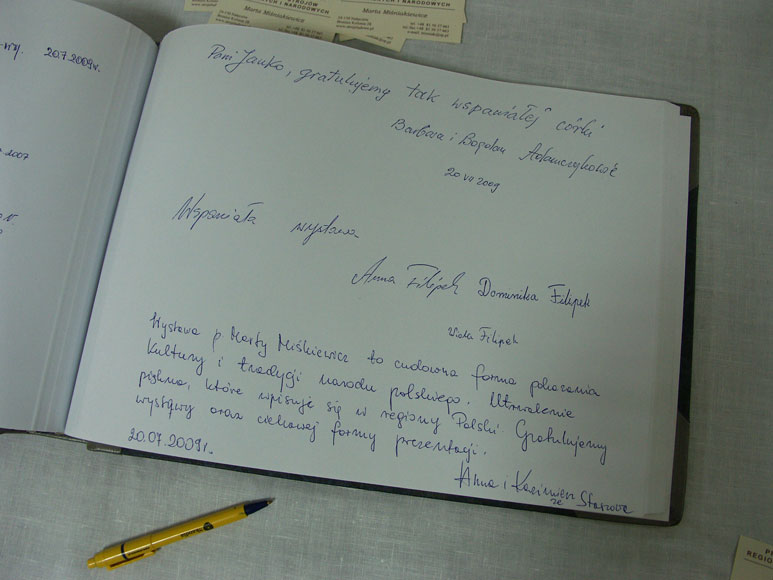 STROJÓW
I NARODOWYCH
Marta Miśniakiewicz
Marta Miśniakiewicz
20.7.2009r.
2007
Pani Janko, gratulujemy tak wspaniałej córki
Barbara i Bogdan Adamczykowie
20 VII 2009
Wspaniała wystawa
Anna Filipek Dominika Filipek
Filipek
Wystawa p Marty Miśkiewicz to cudowna forma pokazania
kultury i tradycji narodu polskiego. Utrwalenie
piękna, które wpisuje się w regiony Polski. Gratulujemy
wystawy oraz ciekawej formy prezentacji.
20.07.2009r.
Anna i Kazimierz
ze